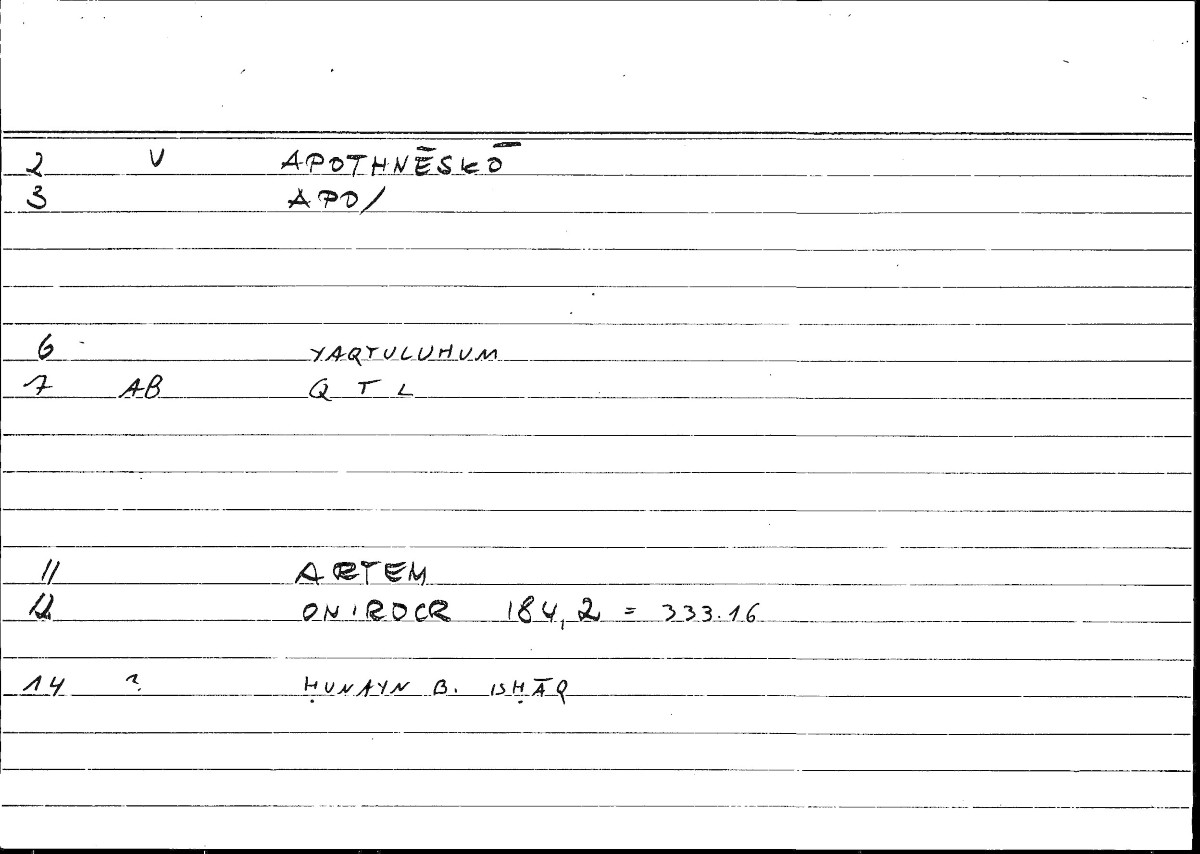 2 V APOTHNĒSKŌ
3 APO/
6 YAQTULUHUM
7 AB Q T L
11 ARTEM
12 ONIROCR 184,2 = 333.16
14 ? ḤUNAYN B. ISḤĀQ